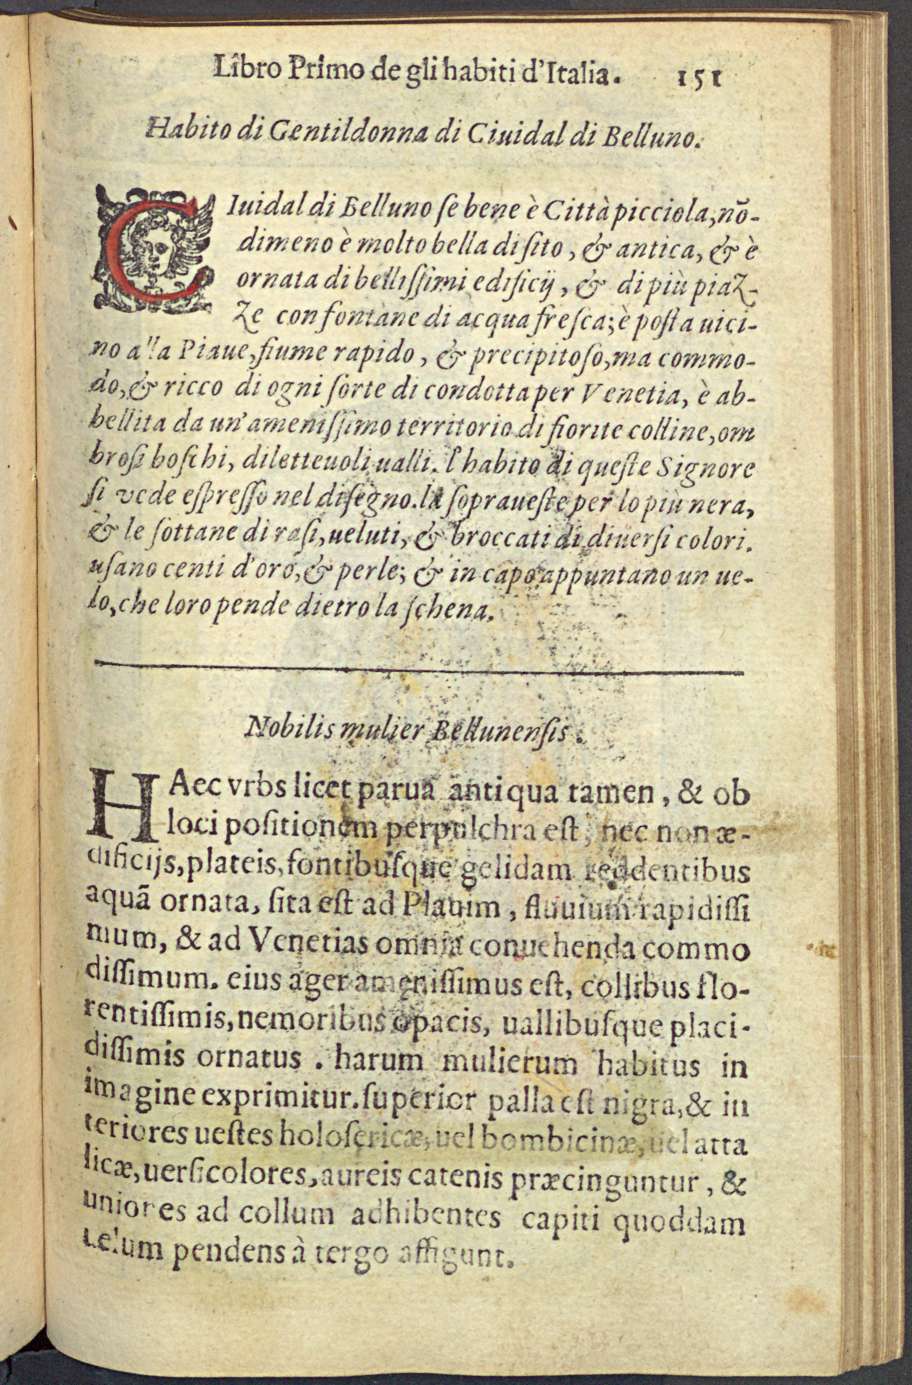 Libro Primo de gli habiti d'Italia. 151
Habito di Gentildonna di Ciuidal di Belluno.
CIuidal di Belluno ſe bene è Città picciola, nō-
dimeno è molto bella di ſito, & antica, & è
ornata di belliſſimi edificij, & di più piaz-
ze con fontane di acqua freſca; è poſta uici-
no alla Piaue, fiume rapido, & precipitoſo, ma commo-
do, & ricco di ogni ſorte di condotta per Venetia, è ab-
bellita da un'ameniſſimo territorio di fiorite colline, om
broſi boſchi, diletteuoli ualli. l'habito di queſte Signore
ſi vede eſpreſſo nel diſegno. la ſopraueſte per lo più nera,
& le ſottane di raſi, ueluti, & broccati di diuerſi colori.
uſano centi d'oro, & perle; & in capo appuntano un ue-
lo, che loro pende dietro la ſchena.
Nobilis mulier Bellunenſis.
HAec vrbs licet parua antiqua tamen, & ob
loci poſitionem perpulchra eſt, nec non æ-
dificijs, plateis, fontibuſque gelidam reddentibus
aquā ornata, ſita eſt ad Plauim, fluuium rapidiſſi
mum, & ad Venetias omnia conuehenda commo
diſſimum. eius ager ameniſſimus eſt, collibus flo-
rentiſſimis, nemoribus opacis, uallibuſque placi-
diſſimis ornatus. harum mulierum habitus in
imagine exprimitur. ſuperior palla eſt nigra, & in
teriores ueſtes holoſericæ, uel bombicinæ, uel atta
licæ, uerſicolores, aureis catenis præcinguntur, &
uniores ad collum adhibentes capiti quoddam
uelum pendens à tergo affigunt.